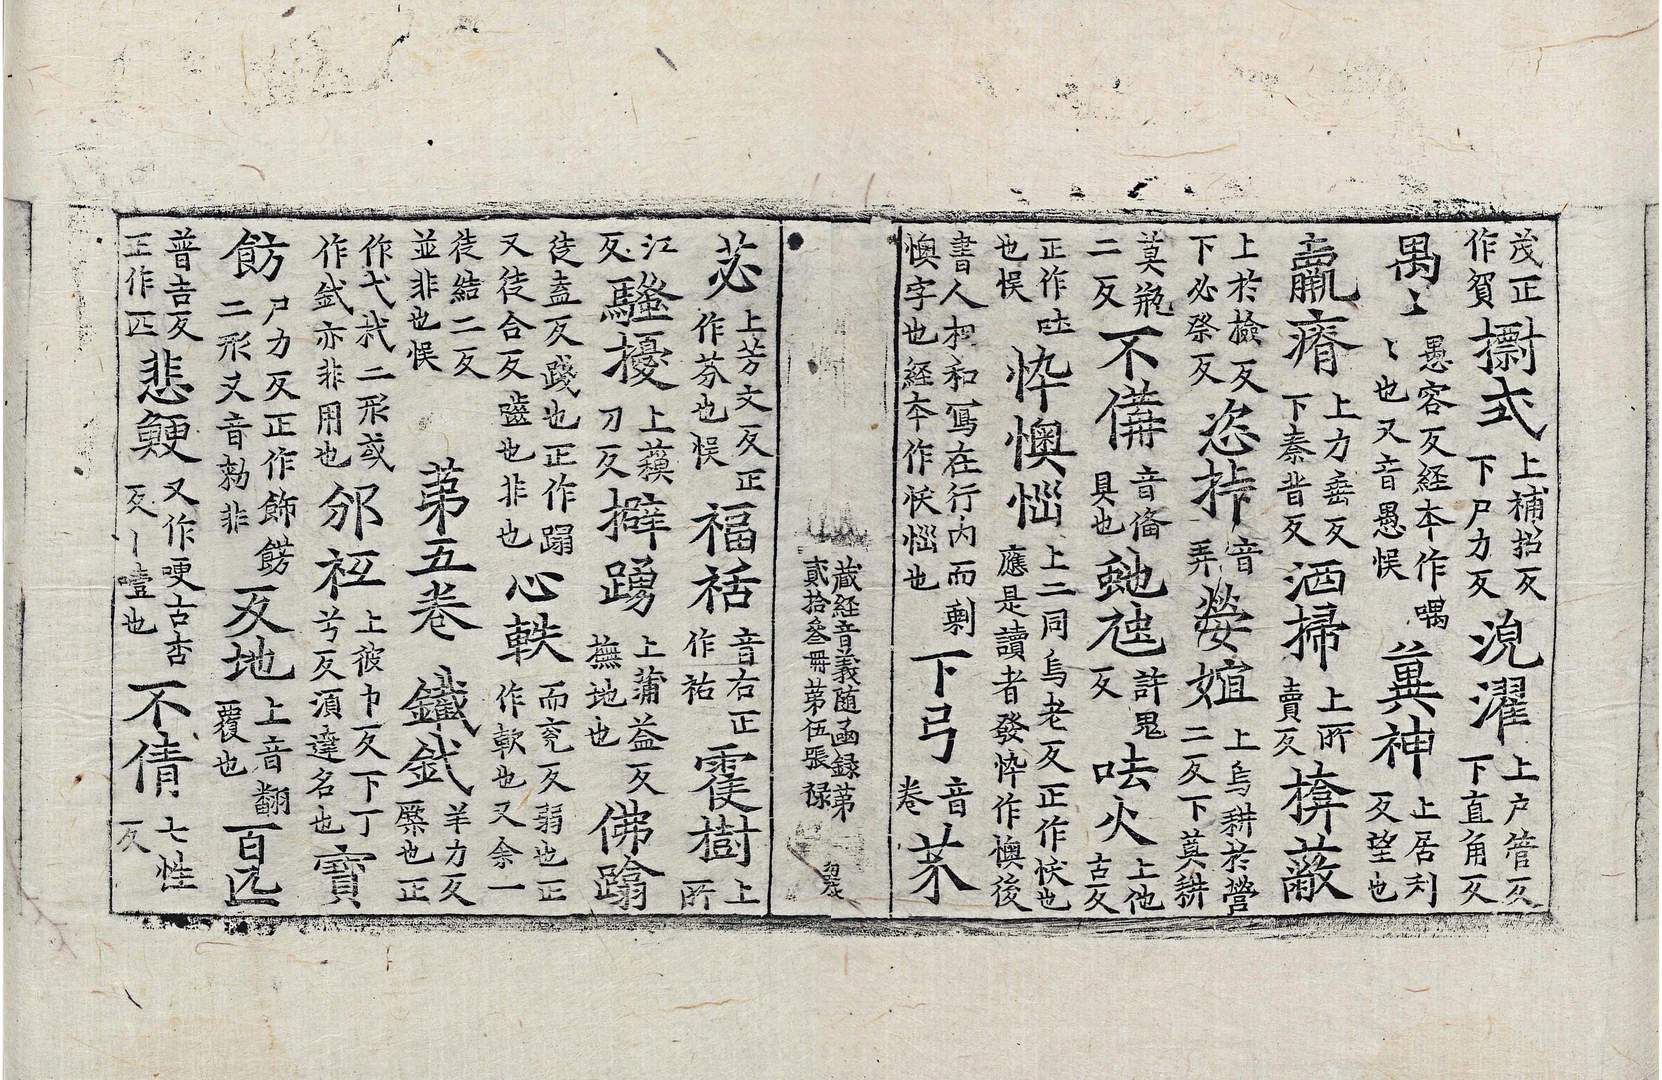 茂正作貿 㨽式 上補招反下尸力反 浣濯 上户管反下直角反
禺〻 愚容反經本作喁〻〻也又音愚悮 兾神 上居利反望也
羸瘠 上力垂反下秦昔反 洒掃 上所賣反 揜蔽
上於檢反下必祭反 恣挊 音弄 嫈嫇 上烏耕於營二反下莫耕
莫瓶二反 不備 音俻具也 虵虺 許鬼反 呿火 上他古反
正作吐也悮 忰懊惱 上二同烏老反正作懊也應是讀者發忰作懊後
書人相和寫在行内而剩懊字也經本作懊惱也 下弓 音卷 苐
藏經音義随函録第貳拾叁冊第伍張 禄
苾 上芳文反正作芬也悮 福祐 音右正作祐 䨥樹 上所
江反 騷擾 上蘓刀反 擗踴 上蒲益反撫地也 佛蹹
徒盍反踐也正作蹋又徒合反䶀也非也 心軼 而兖反弱也正作軟也又余一
徒結二反並非也悮 苐五卷 鐵鉽 羊力反橜也正
作弋杙二形或作鉽亦非用也 邠祁 上彼巾反下丁兮反須達名也 寶
飭 尸力反正作飾餝二形又音勑非 反地 上音翻覆也 百匹
普吉反正作匹 悲鯁 又作哽古杏反丨噎也 不倩 七性反